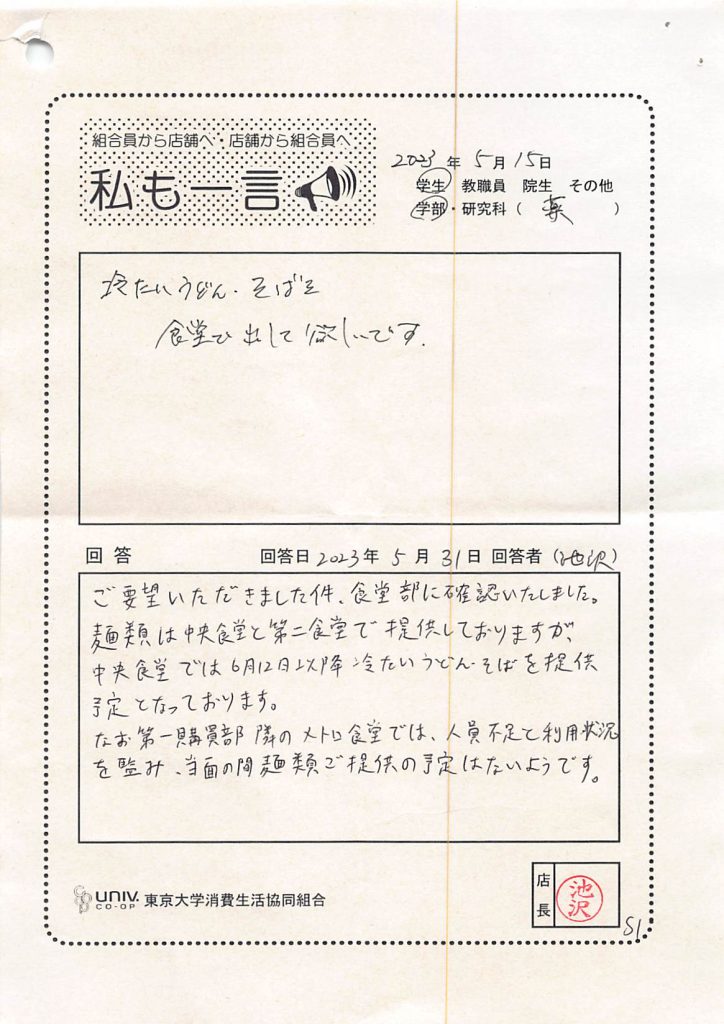 組合員から店舗へ・店舗から組合員へ
私も一言
2023年5月15日
学生 教職員 院生 その他
学部・研究科(薬)
冷たいうどん・そばを
食堂で出して欲しいです.
回答 回答日2023年5月31日 回答者(池沢)
ご要望いただきました件、食堂部に確認いたしました。
麺類は中央食堂と第二食堂で提供しておりますが、
中央食堂では6月12日以降冷たいうどん・そばを提供
予定となっております。
なお第一購買部隣のメトロ食堂では、人員不足と利用状況
を鑑み、当面の間麺類ご提供の予定はないようです。
UNIV. CO-OP 東京大学消費生活協同組合
店長 池沢
S1